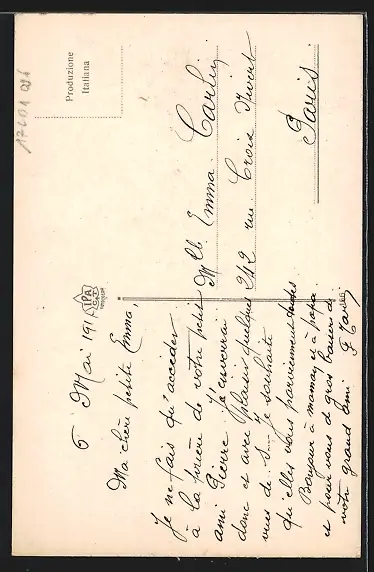 17601 096
Produzione
Italiana
6 Mai 191
Ma chère petite Emma,
Je ne fais qu'accéder
à la prière de votre petit
ami Pierre. J'enverrai
donc et avec plaisir quelques
vues de S. Je souhaite
qu'elles vous parviennent toutes
Bonjour à maman et à papa
et pour vous de gros baisers de
votre grand ami
Mlle Emma Carlin
242 rue Croix Nivert
Paris.
IPA
CT